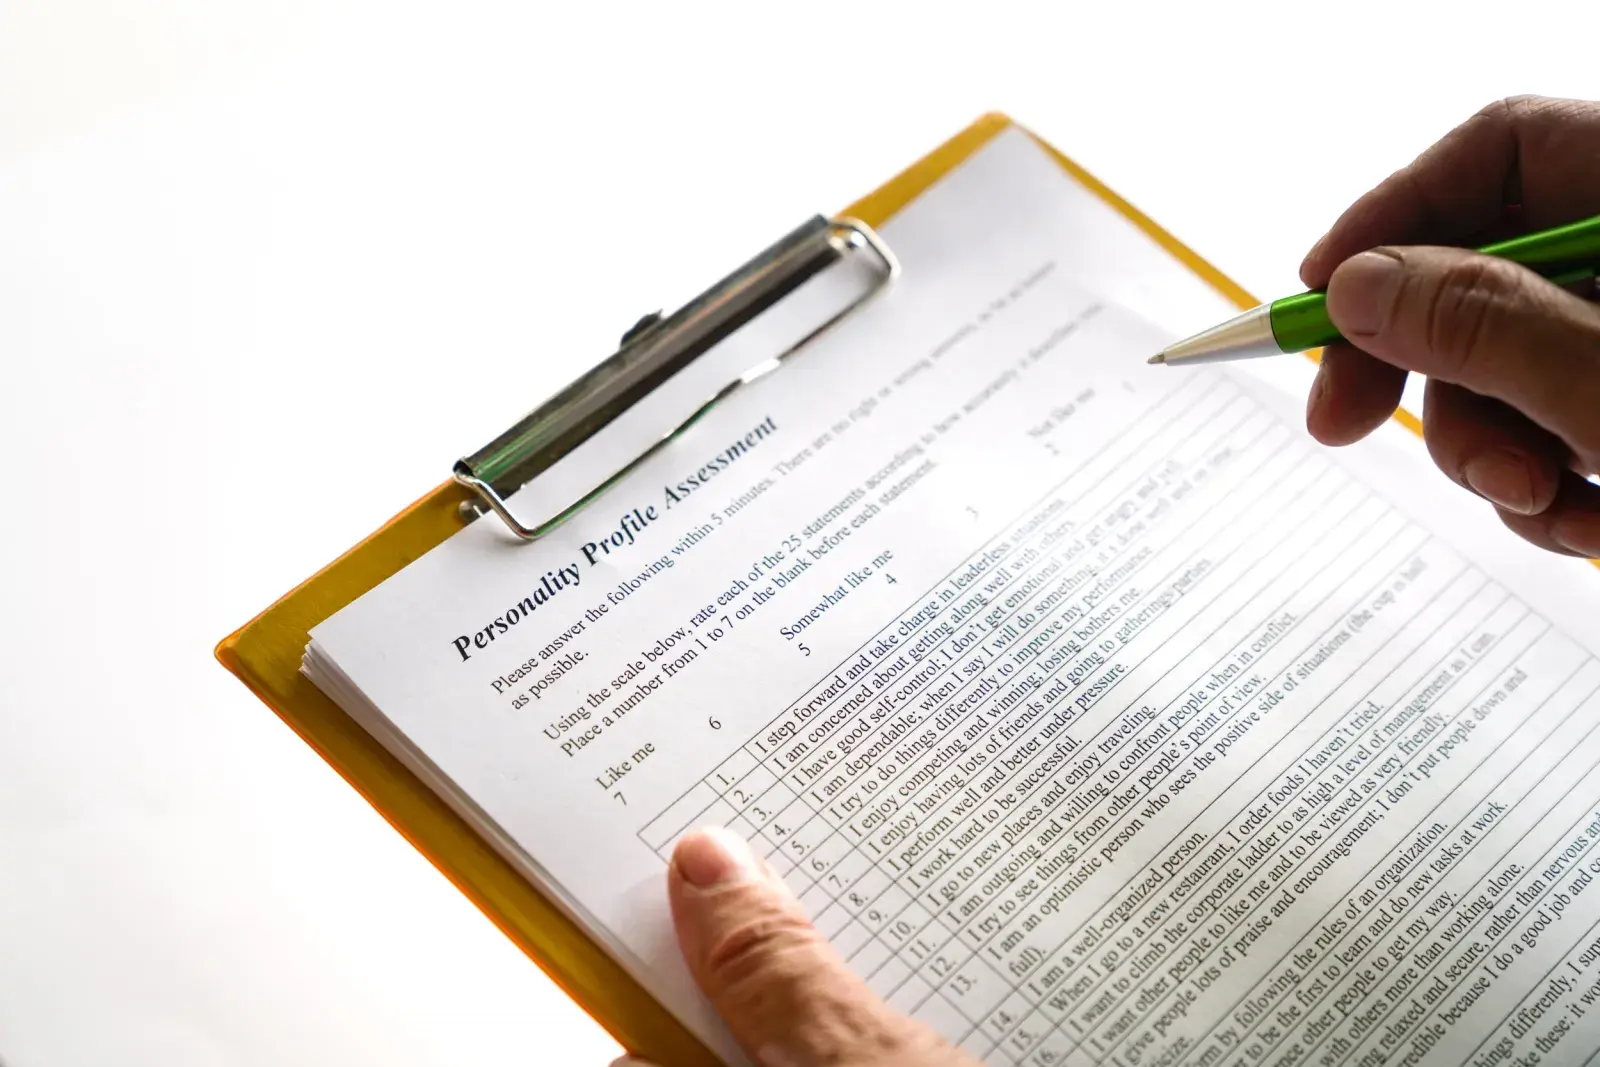 Personality Profile Assessment
Please answer the following within 5 minutes. There are no right or wrong answers, so be as honest
as possible.
Using the scale below, rate each of the 25 statements according to how accurately it describes you.
Place a number from 1 to 7 on the blank before each statement.
Like me Somewhat like me Not like me
7 6 5 4 3 2 1
1. I step forward and take charge in leaderless situations.
2. I am concerned about getting along well with others.
3. I have good self-control; I don't get emotional and get angry and yell.
4. I am dependable; when I say I will do something, it's done well and on time.
5. I try to do things differently to improve my performance.
6. I enjoy competing and winning; losing bothers me.
7. I enjoy having lots of friends and going to gatherings/parties.
8. I perform well and better under pressure.
9. I work hard to be successful.
10. I go to new places and enjoy traveling.
11. I am outgoing and willing to confront people when in conflict.
12. I try to see things from other people's point of view.
13. I am an optimistic person who sees the positive side of situations (the cup is half
full).
14. I am a well-organized person.
15. When I go to a new restaurant, I order foods I haven't tried.
16. I want to climb the corporate ladder to as high a level of management as I can.
I want other people to like me and to be viewed as very friendly.
I give people lots of praise and encouragement; I don't put people down and
ticize.
rm by following the rules of an organization.
er to be the first to learn and do new tasks at work.
nce other people to get my way.
with others more than working alone.
ing relaxed and secure, rather than nervous and
redible because I do a good job and co
ings differently, I supp
like these: it wo